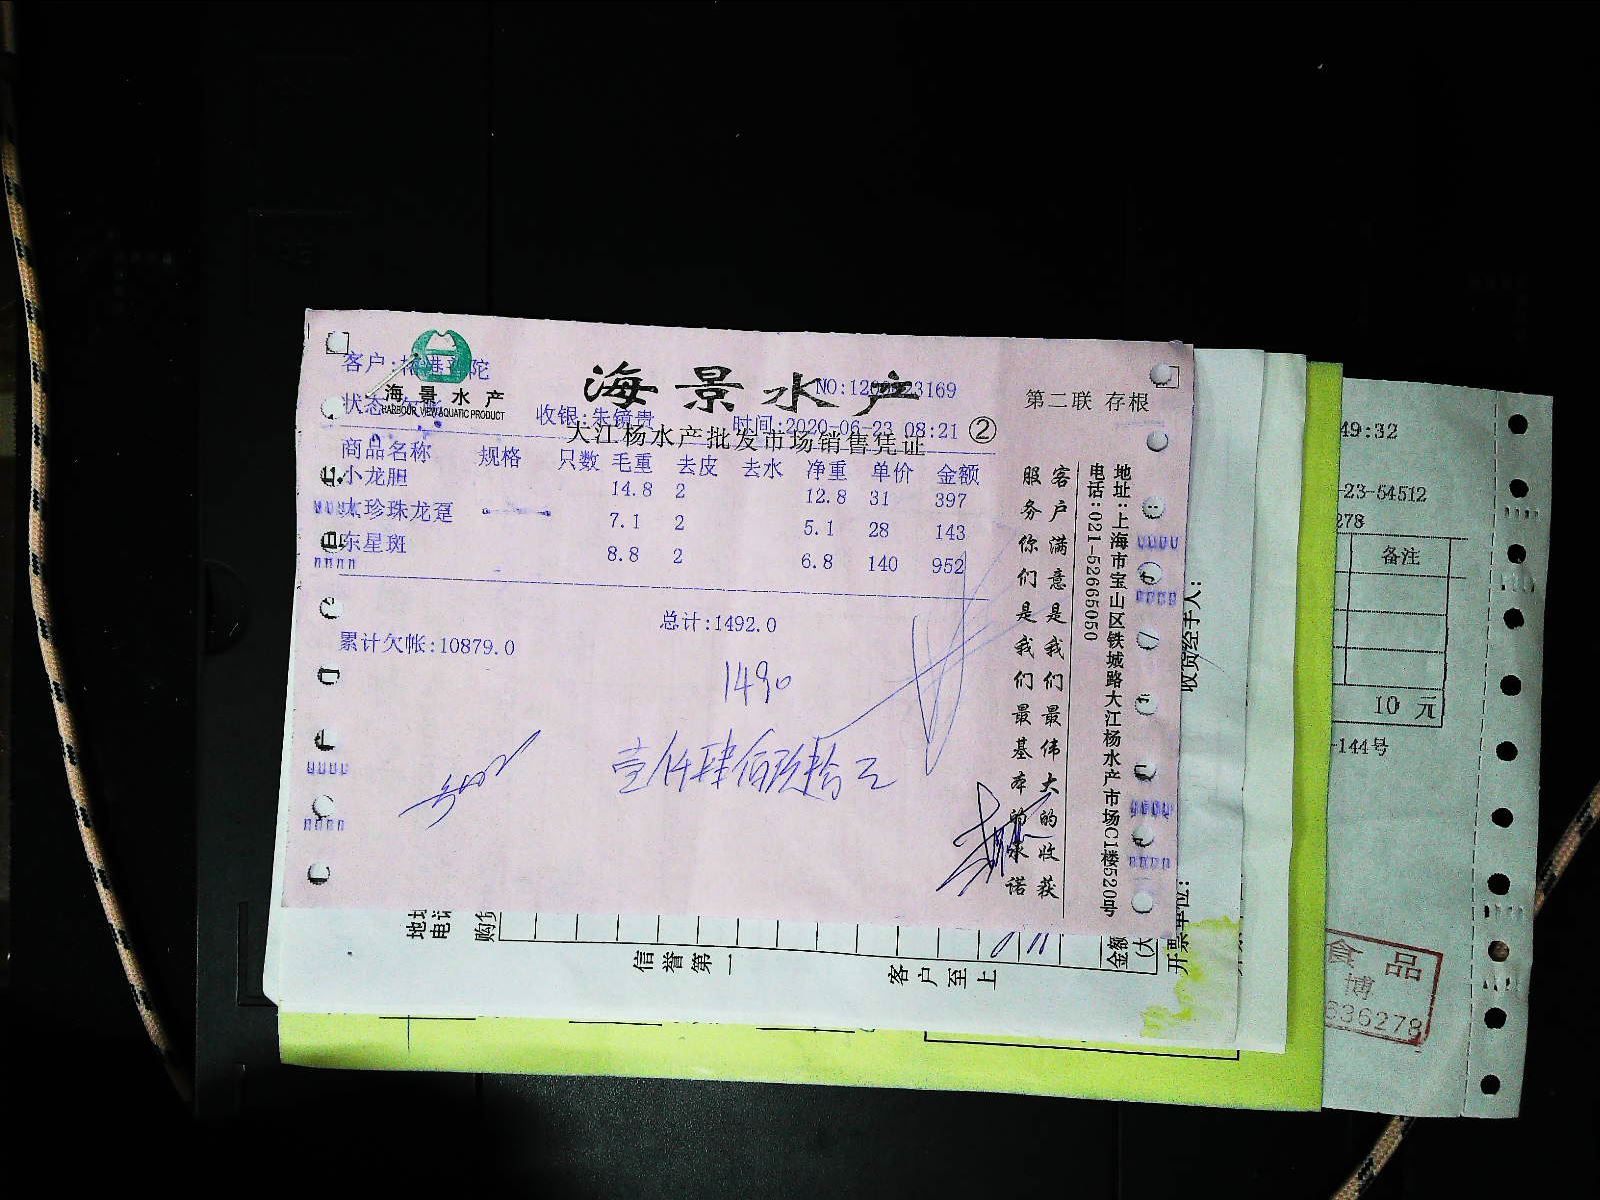 客户:
海景水产
HARBOUR VIEW AQUATIC PRODUCT
海景水产
NO:12
3169
第二联 存根
状态:
收银:朱镜贵
时间:2020-06-23 08:21
②
大江杨水产批发市场销售凭证
商品名称 规格 只数 毛重 去皮 去水 净重 单价 金额
小龙胆 14.8 2 12.8 31 397
大珍珠龙趸 7.1 2 5.1 28 143
东星斑 8.8 2 6.8 140 952
总计:1492.0
累计欠帐:10879.0
1490
壹仟肆佰玖拾元
客户满意是我们最伟大的收获
服务你们是我们最基本的承诺
地址:上海市宝山区铁城路大江杨水产市场C1楼520号
电话:021-52665050
收货经手人:
开票单位:
地址
电话
购货
金额
(大
信誉第一
客户至上
49:32
-23-54512
278
备注
10 元
-144号
食品
博
636278